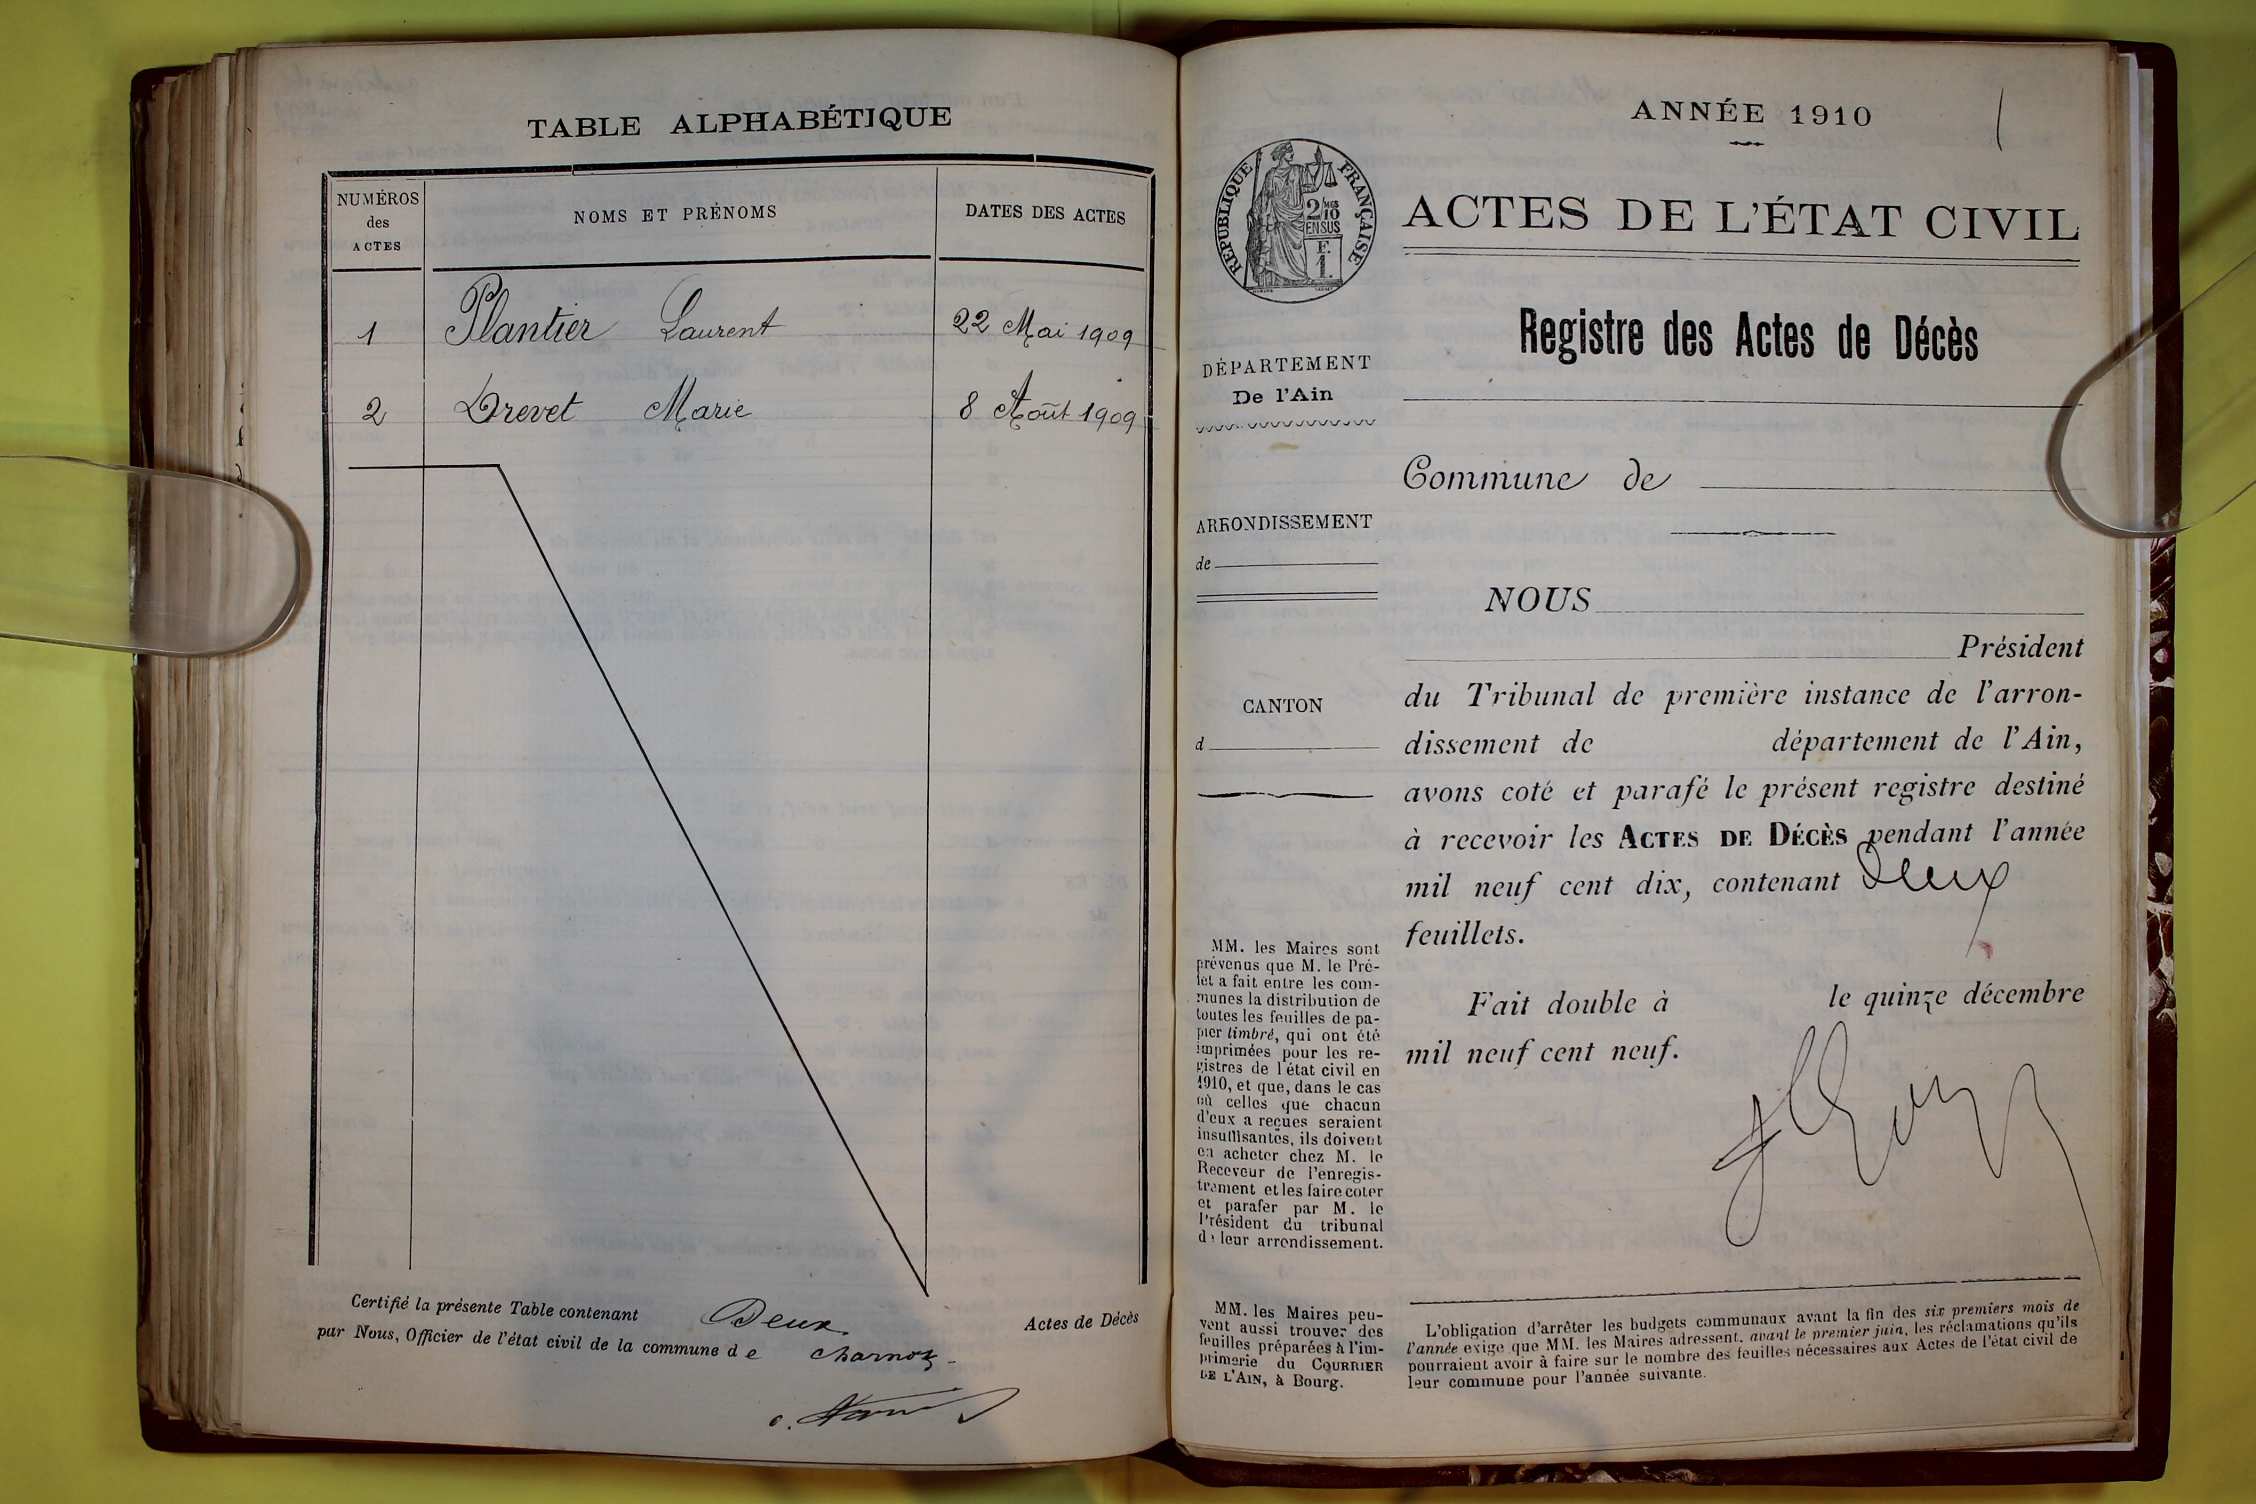 TABLE ALPHABÉTIQUE
NUMÉROS
des
ACTES
NOMS ET PRÉNOMS
DATES DES ACTES
1 Plantier Laurent 22 Mai 1909
2 Drevet Marie 8 Août 1909
Certifié la présente Table contenant Deux Actes de Décès
par Nous, Officier de l'état civil de la commune d e Charnoz
ANNÉE 1910
1
RÉPUBLIQUE FRANÇAISE
2/10
EN SUS
F.
1.
ACTES DE L'ÉTAT CIVIL
Registre des Actes de Décès
DÉPARTEMENT
De l'Ain
Commune de
ARRONDISSEMENT
de
NOUS
Président
CANTON
d
du Tribunal de première instance de l'arron-
dissement de département de l'Ain,
avons coté et parafé le présent registre destiné
à recevoir les ACTES DE DÉCÈS pendant l'année
mil neuf cent dix, contenant deux
feuillets.
Fait double à le quinze décembre
mil neuf cent neuf.
MM. les Maires sont
prévenus que M. le Pré-
fet a fait entre les com-
munes la distribution de
toutes les feuilles de pa-
pier timbré, qui ont été
imprimées pour les re-
gistres de l'état civil en
1910, et que, dans le cas
où celles que chacun
d'eux a reçues seraient
insuffisantes, ils doivent
en acheter chez M. le
Receveur de l'enregis-
trement et les faire coter
et parafer par M. le
Président du tribunal
de leur arrondissement.
MM. les Maires peu-
vent aussi trouver des
feuilles préparées à l'im-
primerie du COURRIER
DE L'AIN, à Bourg.
L'obligation d'arrêter les budgets communaux avant la fin des six premiers mois de
l'année exige que MM. les Maires adressent, avant le premier juin, les réclamations qu'ils
pourraient avoir à faire sur le nombre des feuilles nécessaires aux Actes de l'état civil de
leur commune pour l'année suivante.